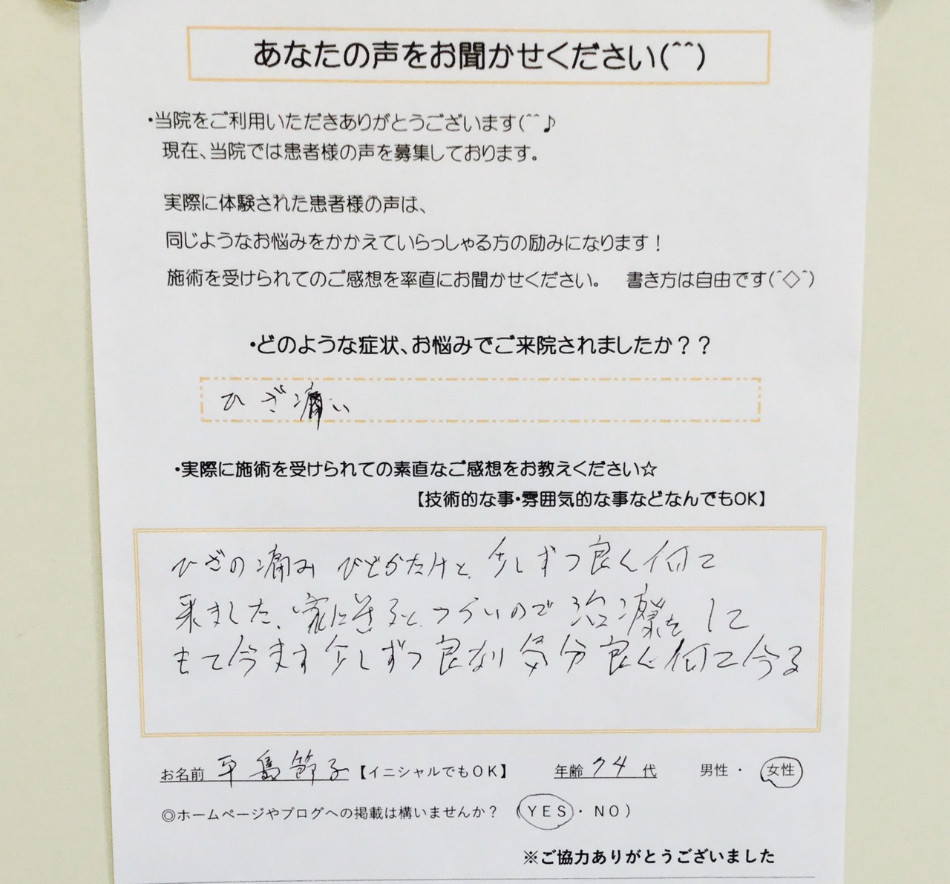 あなたの声をお聞かせください(^^)
・当院をご利用いただきありがとうございます(^^♪
現在、当院では患者様の声を募集しております。
実際に体験された患者様の声は、
同じようなお悩みをかかえていらっしゃる方の励みになります！
施術を受けられてのご感想を率直にお聞かせください。　書き方は自由です(^◇^)
・どのような症状、お悩みでご来院されましたか？？
ひざ痛い
・実際に施術を受けられての素直なご感想をお教えください☆
【技術的な事・雰囲気的な事などなんでもOK】
ひざの痛み ひどかたけと、少しずつ良く何て
来ました、家に
つらいので 治療を して
もて今ます 少しずつ良なり 気分良く何て今る
お名前 平島節子【イニシャルでもOK】 年齢 74 代 男性・女性
◎ホームページやブログへの掲載は構いませんか？ （YES・NO）
※ご協力ありがとうございました